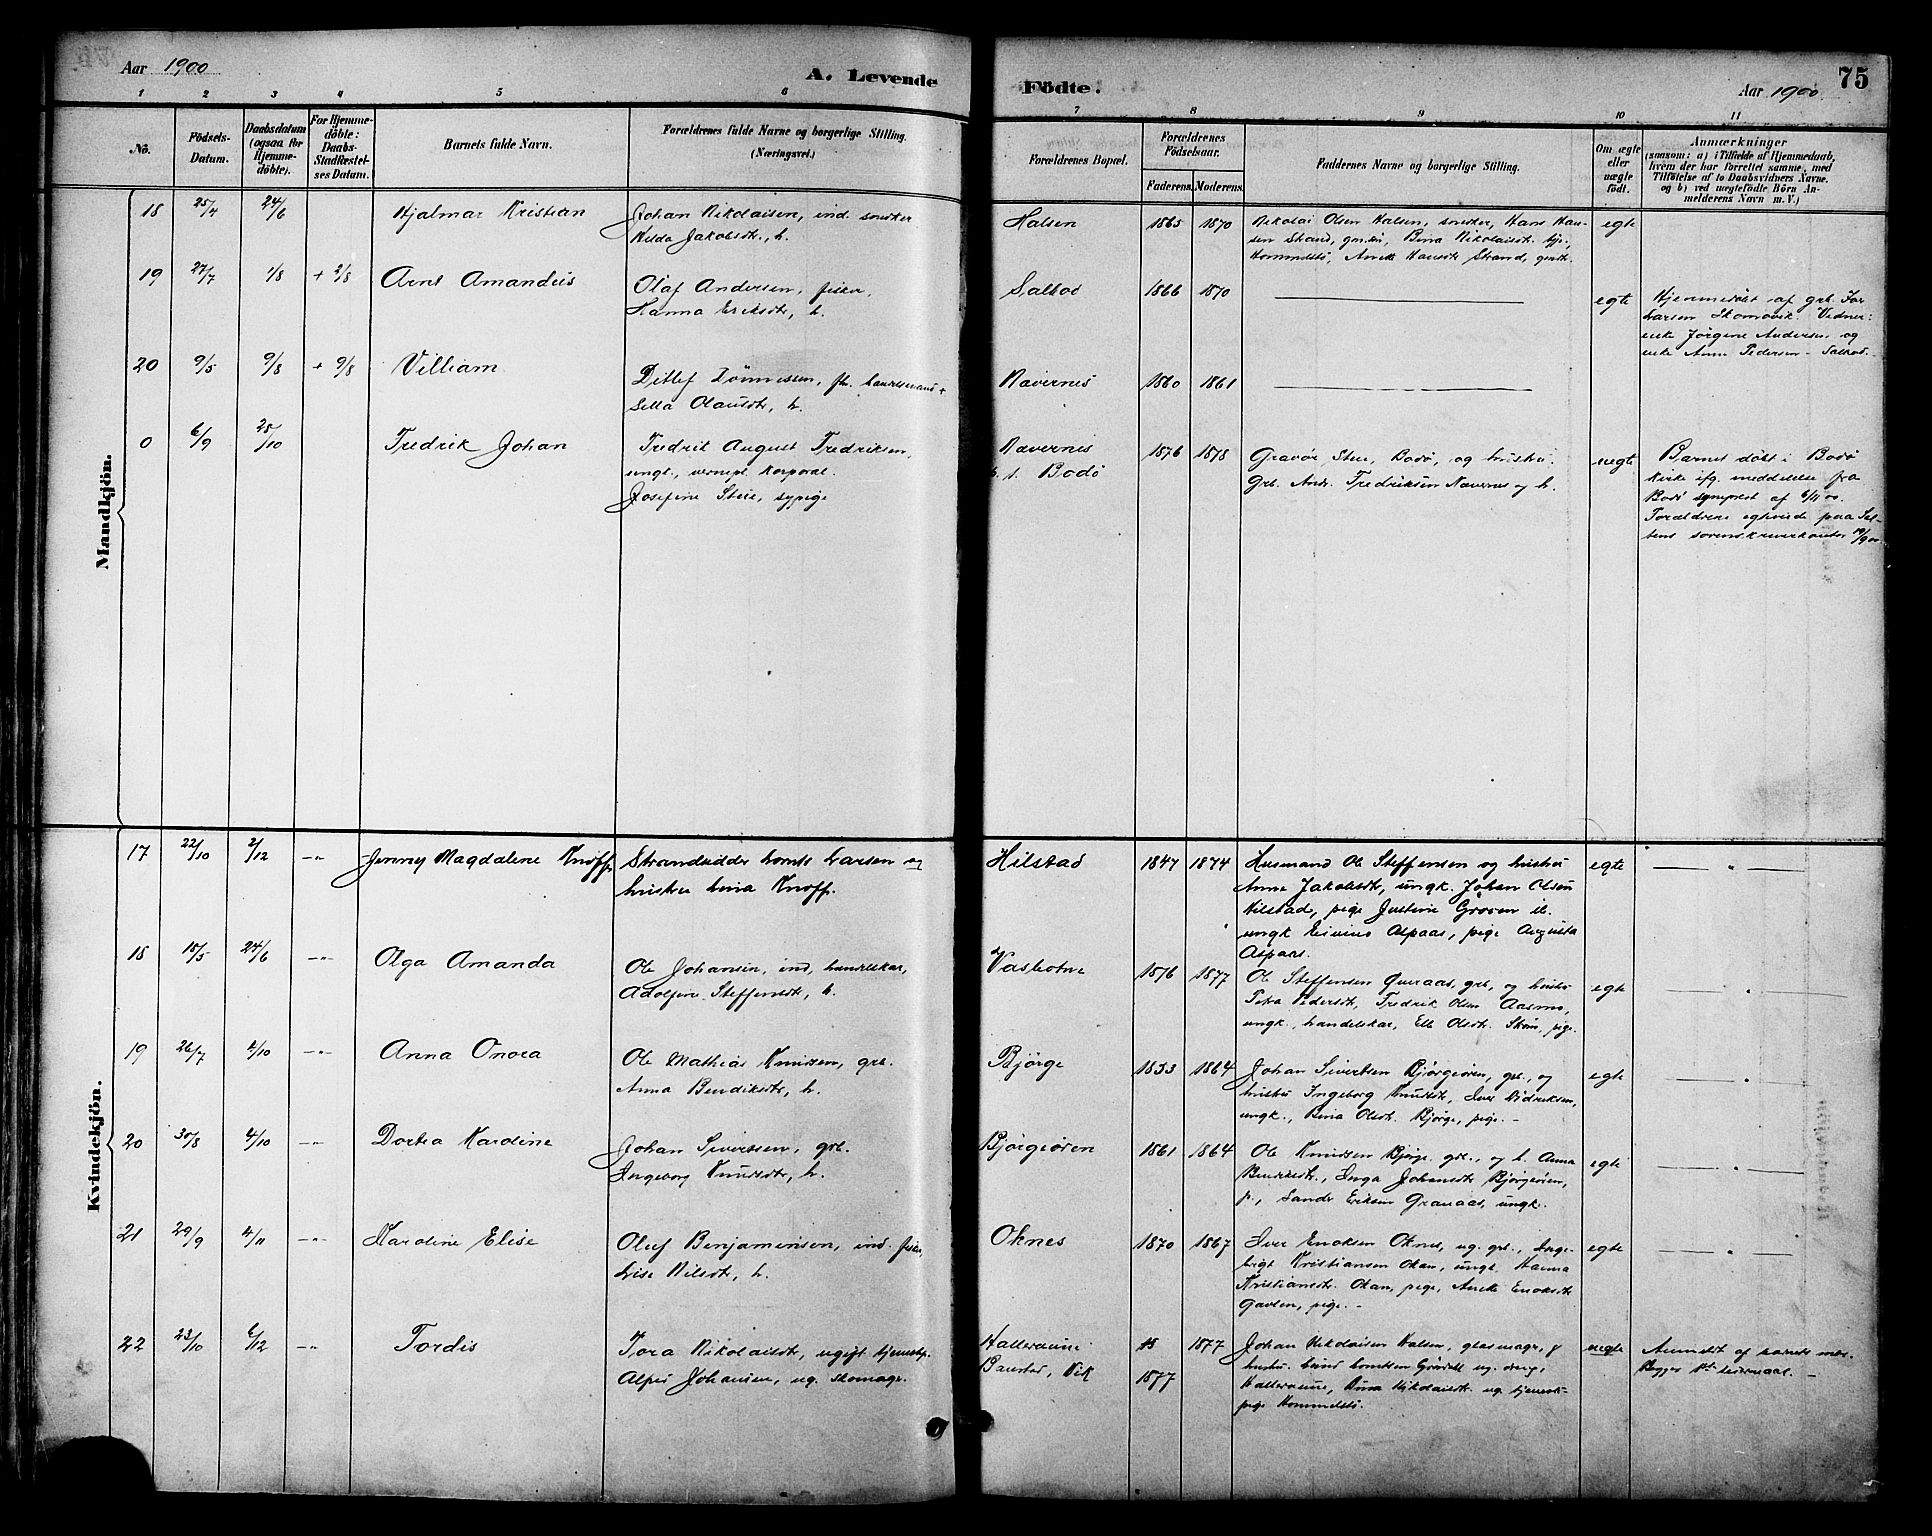 Aar 1900
A. Levende
Födte.
Aar 1900
75
1 2 3 4 5 6 7 8 9 10 11
No.
Födsels-
Datum.
Daabsdatum
(ogsaa for
Hjemme-
döbte).
For Hjemme-
döbte:
Daabs-
Stadfæstel-
ses Datum.
Barnets fulde Navn.
Forældrenes fulde Navne og borgerlige Stilling.
(Næringsvei.)
Forældrenes Bopæl.
Forældrenes
Födselsaar.
Faderens. Moderens.
Faddernes Navne og borgerlige Stilling.
Om ægte
eller
uægte
födt.
Anmærkninger
(saasom: a) i Tilfælde af Hjemmedaab,
hvem der har forrettet samme, med
Tilföielse af to Daabsvidners Navne.
og b) ved uægtefödte Börn An-
melderens Navn m. V.)
Mandkjön.
18 25/4 24/6 Hjalmar Kristian
Johan Nikolaisen, ind. snedker
Hilda Jakobsdt., h.
Halsen 1865 1870
Nikolai Olsen Halsen, snedker, Hans Han-
sen Strand, Bina Nikolaisdt. tjp.,
Hommelstø, Anette Hansdt. Strand,
egte
19 27/7 1/8 + 2/8 Arnt Amandus
Olaf Andersen, fisker,
Hanna Eriksdt., h.
Salbod 1866 1870
egte
Hjemmedøbt af grb. Ivar
Larsen Vidner:
enke Jørgine Andersen og
enke Anne Pedersen - Salbod.
20 9/5 9/8 + 9/8 Villiam
Ditlef Tønnesen, handelsmand
Olausdt., h.
Nævernes 1860 1861
0 6/9 25/10 Fredrik Johan
Fredrik August Fredriksen,
ungk., vernepl. korporal
Josefine Stue, sypige
Nævernes
p. t. Bodø
1876 1878
Gravør Stue, Bodø, og hustru.
Grb. Andr. Fredriksen Nævernes og h.
uegte
Barnet døbt i Bodø
kirke ifg. meddelelse fra
Bodø sogneprest af 6/11 00.
Forældrene egteviede paa Sal-
tens sorenskriverkontor
Kvindekjön.
17 22/10 2/12 -"- Jenny Magdalene Knoff.
Strandsidder Lornts Larsen og
hustru Lina Knoff.
Hilstad 1847 1874
Husmand Ole Steffensen og hustru
Anne Jakobsdt., ungk. Johan Olsen
Hilstad, pige Justine Grøven
ungk Eivind Aspaas, pige Augusta
Aspaas.
egte "
18 15/5 24/6 -"- Olga Amanda
Ole Johansen, ind, handelskar,
Adolfine Steffensdt., h.
Vasbotne 1876 1877
Ole Steffensen Øveraas, grb., og hustru
Petra Pedersdt., Fredrik Olsen Aasmo,
ungk., handelskar, Olsdt. pige.
egte "
19 26/7 4/10 -"- Anna Onora
Ole Mathias Knudsen, grb.
Anna Bendiksdt., h.
Bjørge 1833 1864
Johan Sivertsen Bjørgeøren, grb., og
hustru Ingeborg Knudsdt., Iver Didriksen,
ungk., Bina Olsdt. Bjørge, pige. -
egte "
20 30/8 4/10 -"- Dortea Kardine
Johan Sivertsen, grb.
Ingeborg Knudsdt., h.
Bjørgeøren 1861 1864
Ole Knudsen Bjørge grb., og h. Anna
Bendiksdt., Inga Johansdt Bjørgeøren,
p., Sander Eriksen Granaas, ungk.
egte "
21 29/9 4/11 -"- Karoline Elise
Oluf Benjaminsen, ind. fisker,
Lise Nilsdt., h.
Oknes 1870 1867
Iver Enoksen Oknes, ug. grb., Inge-
brigt Kristiansen Okan, ungk. Hanna
Kristiansdt. Okan, pige, Anette Enoksdt
pige. -
egte "
22 23/10 6/12 -"- Tordis
Tora Nikolaisdt, ugift tjenestp.
Johansen, ug. skomagr.
Hallersune
Vik
18
1877
1877
Johan Nikolaisen Halsen, glasmagr. &
hustru.
Hallersune, Nikolaisdt. ug. tjeneste-
pige Hommelstø.
uegte
Anmeldt af barnets mor.
Begges 1ste leiermaal. -